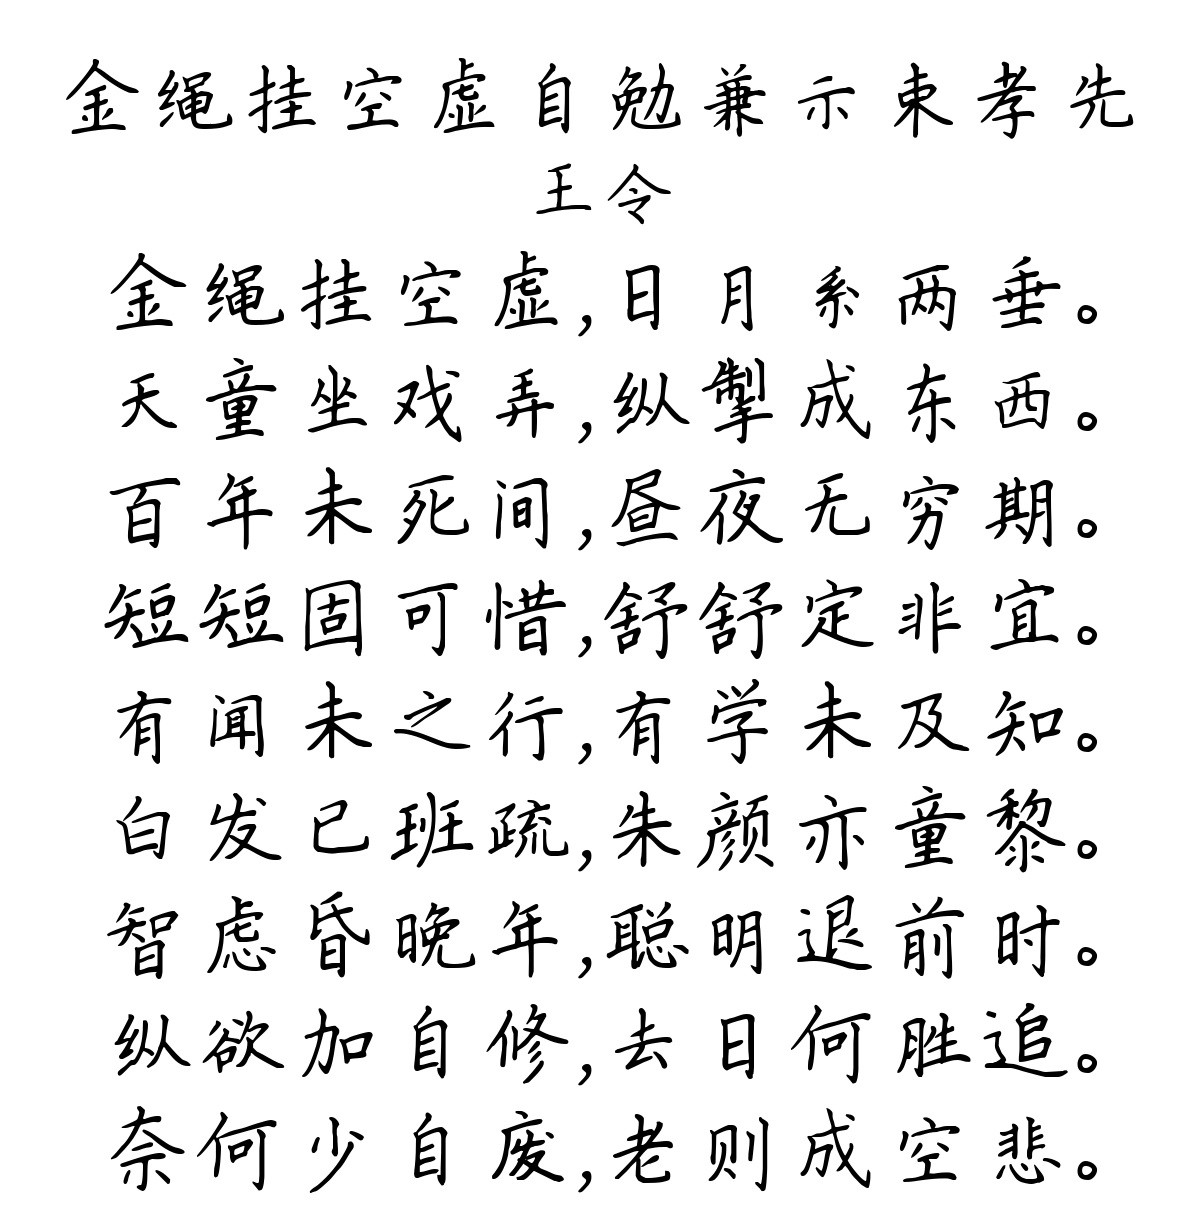 金绳挂空虚自勉兼示束孝先
王令
金绳挂空虚,日月系两垂。
天童坐戏弄,纵掣成东西。
百年未死间,昼夜无穷期。
短短固可惜,舒舒定非宜。
有闻未之行,有学未及知。
白发已班疏,朱颜亦童黎。
智虑昏晚年,聪明退前时。
纵欲加自修,去日何胜追。
奈何少自废,老则成空悲。